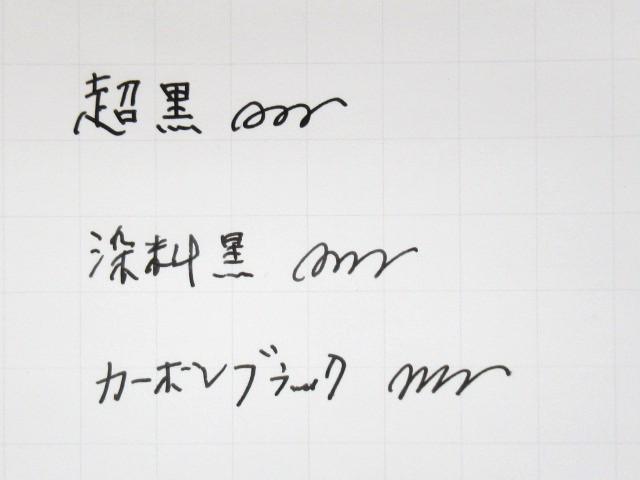 超黒
染料黒
カーボンブラック